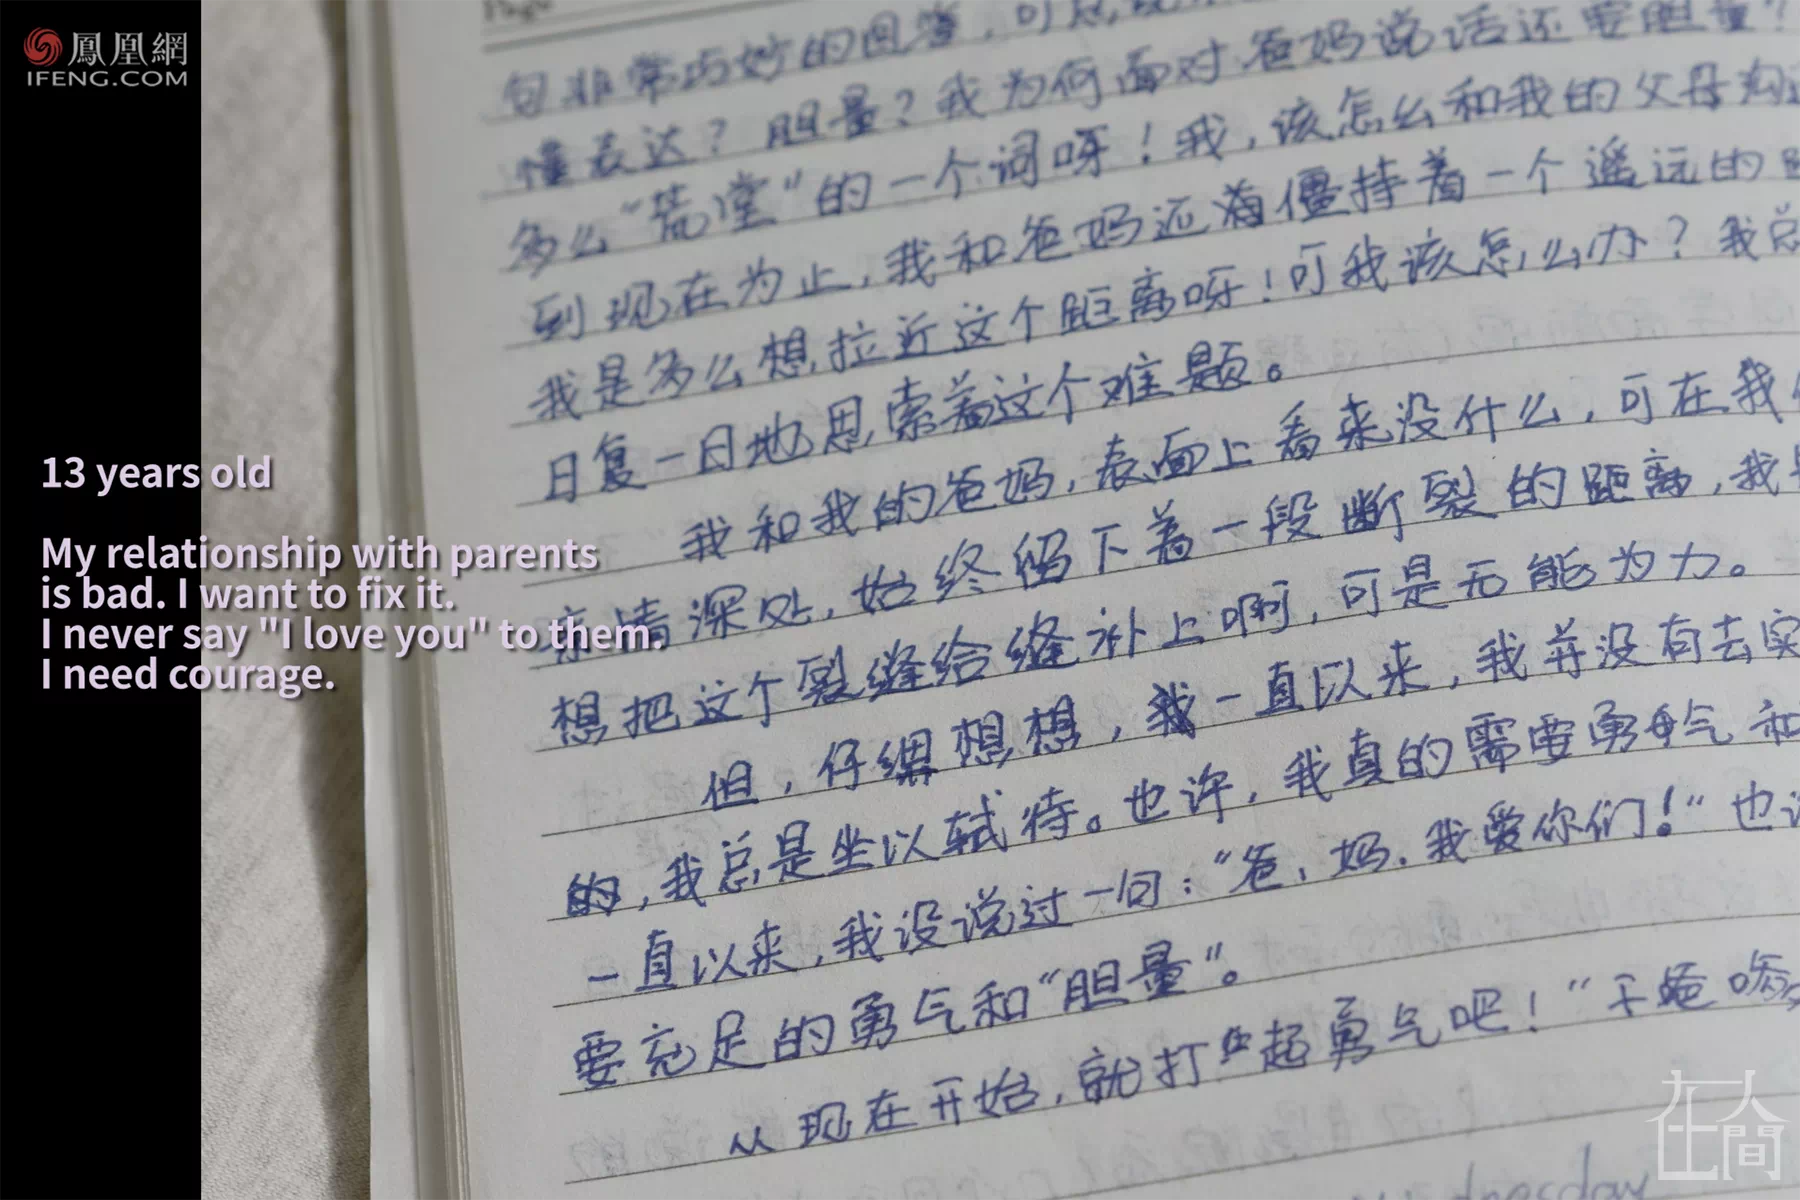 鳳凰網
IFENG.COM
Page
非常巧妙的回答，可
面对爸妈说话还要胆量？
懂表达？胆量？我为何
多么“荒堂”的一个词呀！我，该怎么和我的父母沟
到现在为止，我和爸妈还着僵持着一个遥远的
我是多么想拉近这个距离呀！可我该怎么办？我总
日复一日地思索着这个难题。
我和我的爸妈，表面上看来没什么，可在我
亲情深处，始终留下着一段断裂的距离，我
想把这个裂缝给缝补上啊，可是无能为力。
但，仔细想想，我一直以来，我并没有去实
的，我总是坐以轼待。也许，我真的需要勇气和
一直以来，我没说过一句：“爸，妈，我爱你们！”也
要充足的勇气和“胆量”。
从现在开始，就打起勇气吧！“
13 years old
My relationship with parents
is bad. I want to fix it.
I never say "I love you" to them.
I need courage.
在人間